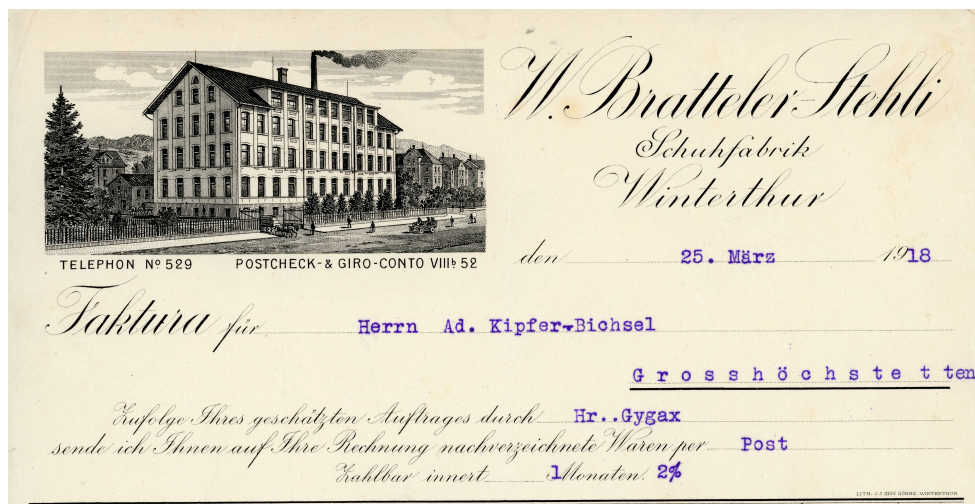 W. Bratteler-Stehli
Schuhfabrik
Winterthur
TELEPHON Nº 529 POSTCHECK- & GIRO-CONTO VIIIb 52
den 25. März 1918
Faktura für Herrn Ad. Kipfer-Bichsel
Grosshöchstetten
Zufolge Ihres geschätzten Auftrages durch Hr..Gygax
sende ich Ihnen auf Ihre Rechnung nachverzeichnete Waren per Post
Zahlbar innert 1 Monaten. 2%
LITH. J.J. SÖHNE, WINTERTHUR